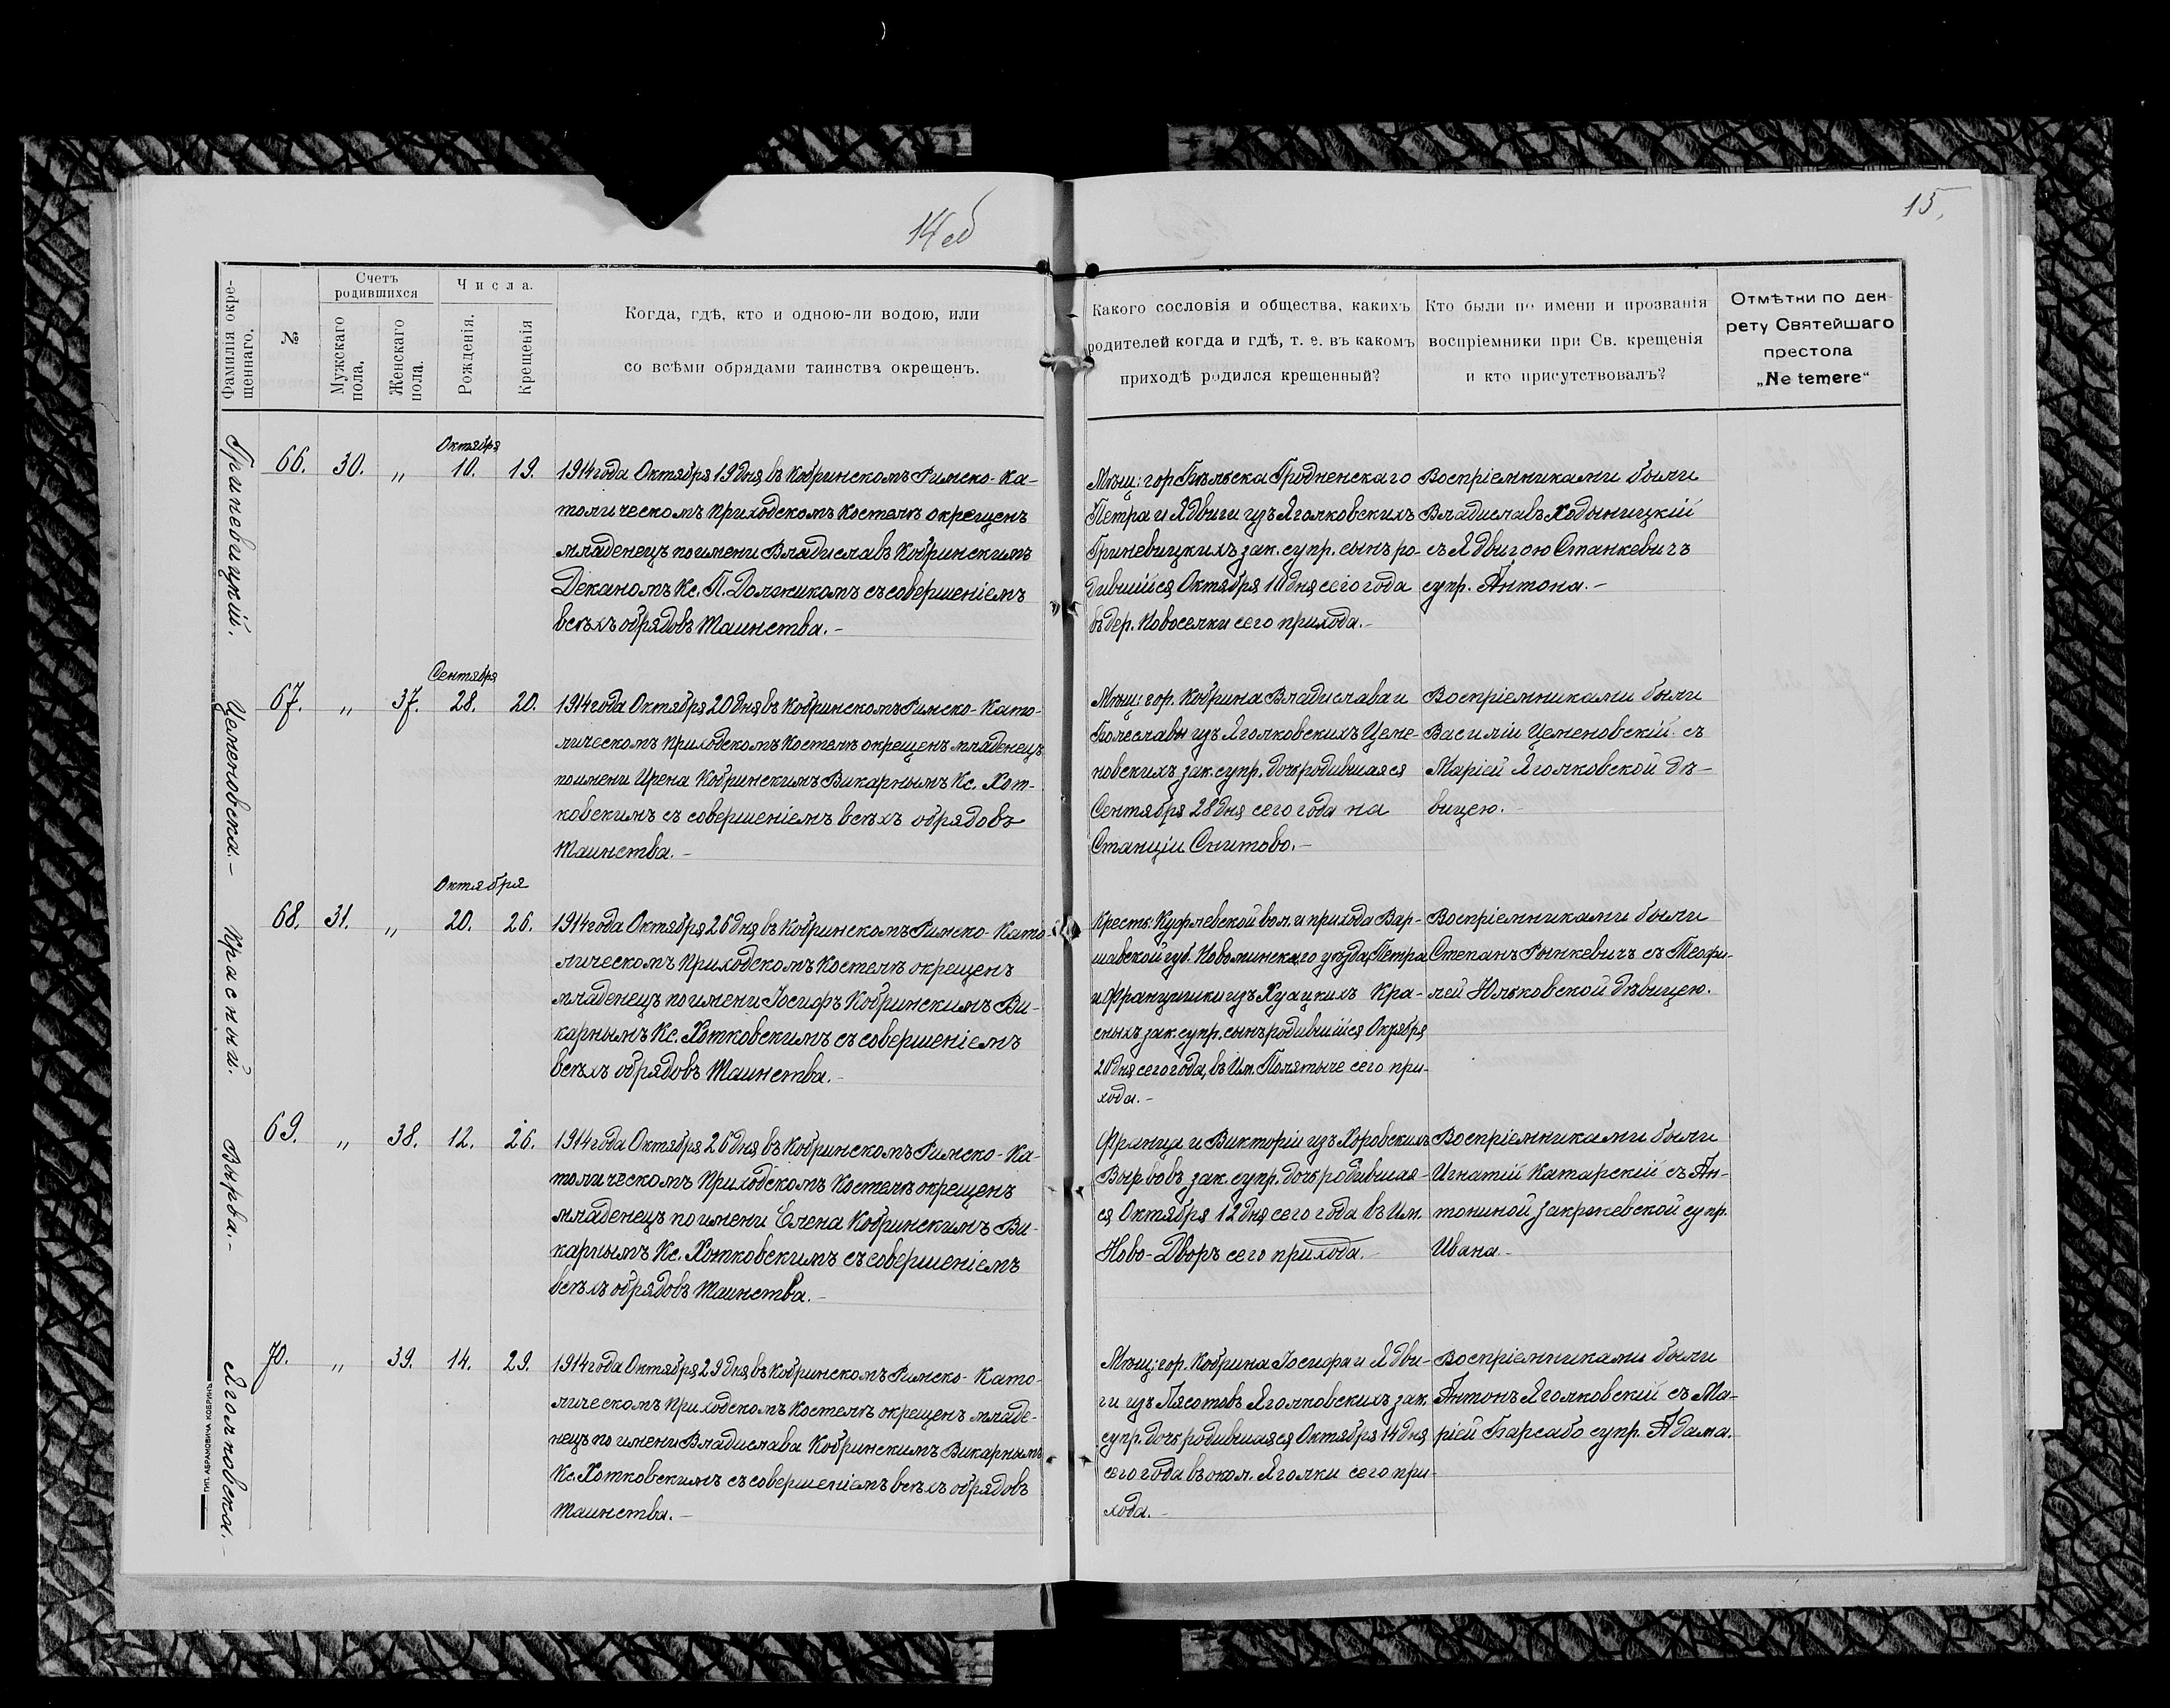 14 об
15.
Фамилія окрещеннаго.
№
Счетъ родившихся
Мужскаго пола.
Женскаго пола.
Числа.
Рожденія.
Крещенія
Когда, гдѣ, кто и одною-ли водою, или
со всѣми обрядами таинства окрещенъ.
Какого сословія и общества, какихъ
родителей когда и гдѣ, т. е. въ какомъ
приходѣ родился крещенный?
Кто были по имени и прозванія
воспріемники при Св. крещенія
и кто присутствовалъ?
Отмѣтки по дек-
рету Святейшаго
престола
„Ne temere“
Гриневицкій.
66. 30. „ Октября 10. 19.
1914 года Октября 19 дня въ Кобринскомъ Римско-Ка-
толическомъ Приходскомъ Костелѣ окрещенъ
младенецъ по имени Владиславъ Кобринскимъ
Деканомъ Кс. П. Должикомъ съ совершеніемъ
всѣхъ обрядовъ Таинства.-
Мѣщ: гор Бѣльска Гродненскаго
Петра и Ядвиги изъ Яголковскихъ
Гриневицкихъ зак. супр. сынъ ро-
дившійся Октября 10 дня сего года
въ дер. Новоселки сего прихода.-
Воспріемниками были
Владиславъ Ходыницкій
съ Ядвигою Станкевичъ
супр. Антона.-
Цеменовска.-
67. „ 37. Сентября 28. 20.
1914 года Октября 20 дня въ Кобринскомъ Римско-Като-
лическомъ Приходскомъ Костелѣ окрещенъ младенецъ
по имени Ирена Кобринскимъ Викарнымъ Кс. Хот-
ковскимъ съ совершеніемъ всѣхъ обрядовъ
Таинства.-
Мѣщ: гор. Кобрина Владислава и
Болеславы изъ Яголковскихъ Цеме-
новскихъ зак. супр. дочь родившаяся
Сентября 28 дня сего года на
Станціи Снитово.-
Воспріемниками были
Василій Цеменовскій съ
Маріей Яголковской дѣ-
вицею.-
Красный.
68. 31. „ Октября 20. 26.
1914 года Октября 26 дня въ Кобринскомъ Римско-Като-
лическомъ Приходскомъ Костелѣ окрещенъ
младенецъ по имени Іосифъ Кобринскимъ Ви-
карнымъ Кс. Хотковскимъ съ совершеніемъ
всѣхъ обрядовъ Таинства.-
Кресть: Куфлевской вол. и прихода Вар-
шавской губ. Новоминскаго уѣзда, Петра
и Францишки изъ Кра-
сныхъ зак. супр. сынъ родившійся Октября
20 дня сего года, въ Им. Полятыче сего при-
хода.-
Воспріемниками были
Степанъ Рынкевичъ съ Теофи-
лей Юльковской дѣвицею.
Вырва.-
69. „ 38. 12. 26.
1914 года Октября 26 дня въ Кобринскомъ Римско-Ка-
толическомъ Приходскомъ Костелѣ окрещенъ
младенецъ по имени Елена Кобринскимъ Ви-
карнымъ Кс. Хотковскимъ съ совершеніемъ
всѣхъ обрядовъ Таинства.-
Франца и Викторіи изъ Хоровскихъ
Вырвовъ зак. супр. дочь родившая-
ся Октября 12 дня сего года въ Им.
Ново-Дворъ сего прихода.-
Воспріемниками были
Игнатій Катарскій съ Ан-
тониной Закржевской супр.
Ивана.-
Яголковска.-
70. „ 39. 14. 29.
1914 года Октября 29 дня въ Кобринскомъ Римско-Като-
лическомъ Приходскомъ Костелѣ окрещенъ младе-
нецъ по имени Владислава Кобринскимъ Викарнымъ
Кс. Хотковскимъ съ совершеніемъ всѣхъ обрядовъ
Таинства.-
Мѣщ: гор. Кобрина Іосифа и Ядви-
ги изъ Лясотовъ Яголковскихъ зак.
супр. дочь родившаяся Октября 14 дня
сего года въ окол. Яголки сего при-
хода.-
Воспріемниками были
Антонъ Яголковскій съ Ма-
ріей Барсабо супр. Адама.
ТИП. АБРАМОВИЧА, КОБРИНЪ